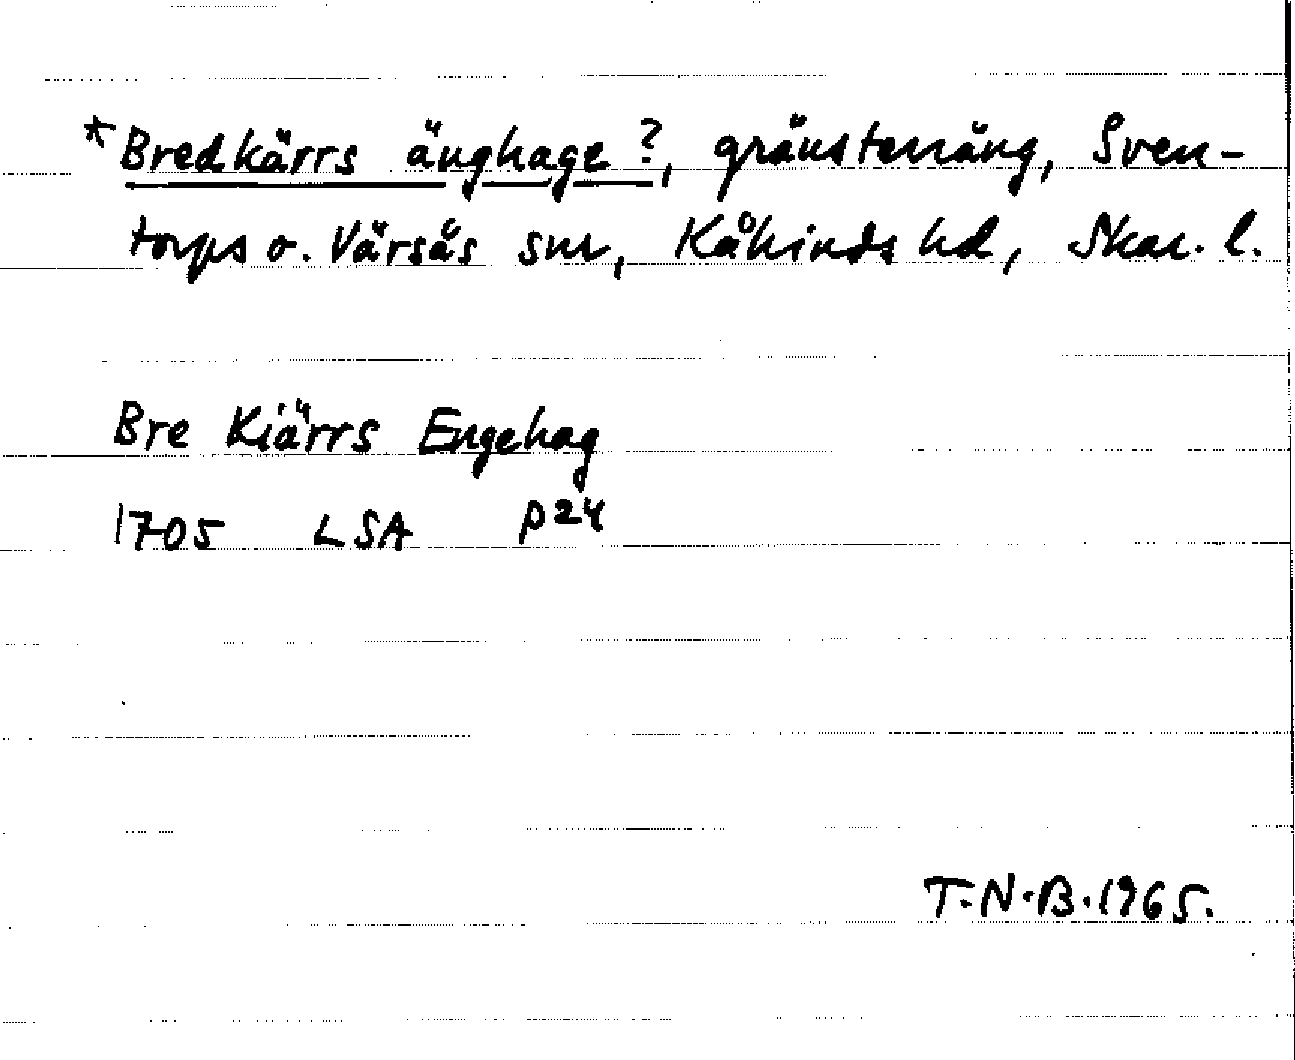 *Bredkärrs änghage?, gränsterräng, Sven-
torps o. Värsås snr, Kåkinds hd, Skar. l.
Bre Kiärrs Engehag
1705 LSA P24
T.N.B. 1965.